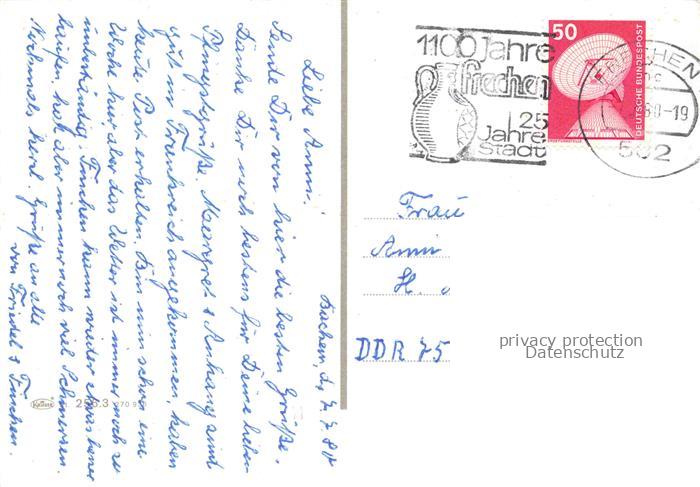 Buchem, d. 7.7.80
Liebe Anni!
Sende Dir von hier die besten Grüße.
Danke Dir noch bestens für Deine lieben
Pfingstgrüße. Margret & Anhang sind
gut in Frankreich angekommen, haben
heute Post erhalten. Bin nun schon eine
Woche hier aber das Wetter ist immer noch so
unbeständig. Finchen kann wieder etwas besser
laufen, hat aber immer noch viel Schmerzen.
Nochmals herzl. Grüße an alle
von Friedel & Finchen.
Krüger
256.3
1100 Jahre
frechen
25
Jahre
Stadt
50
DEUTSCHE BUNDESPOST
FRECHEN
80-19
502
Frau
Anni
H.
DDR 75
privacy protection
Datenschutz